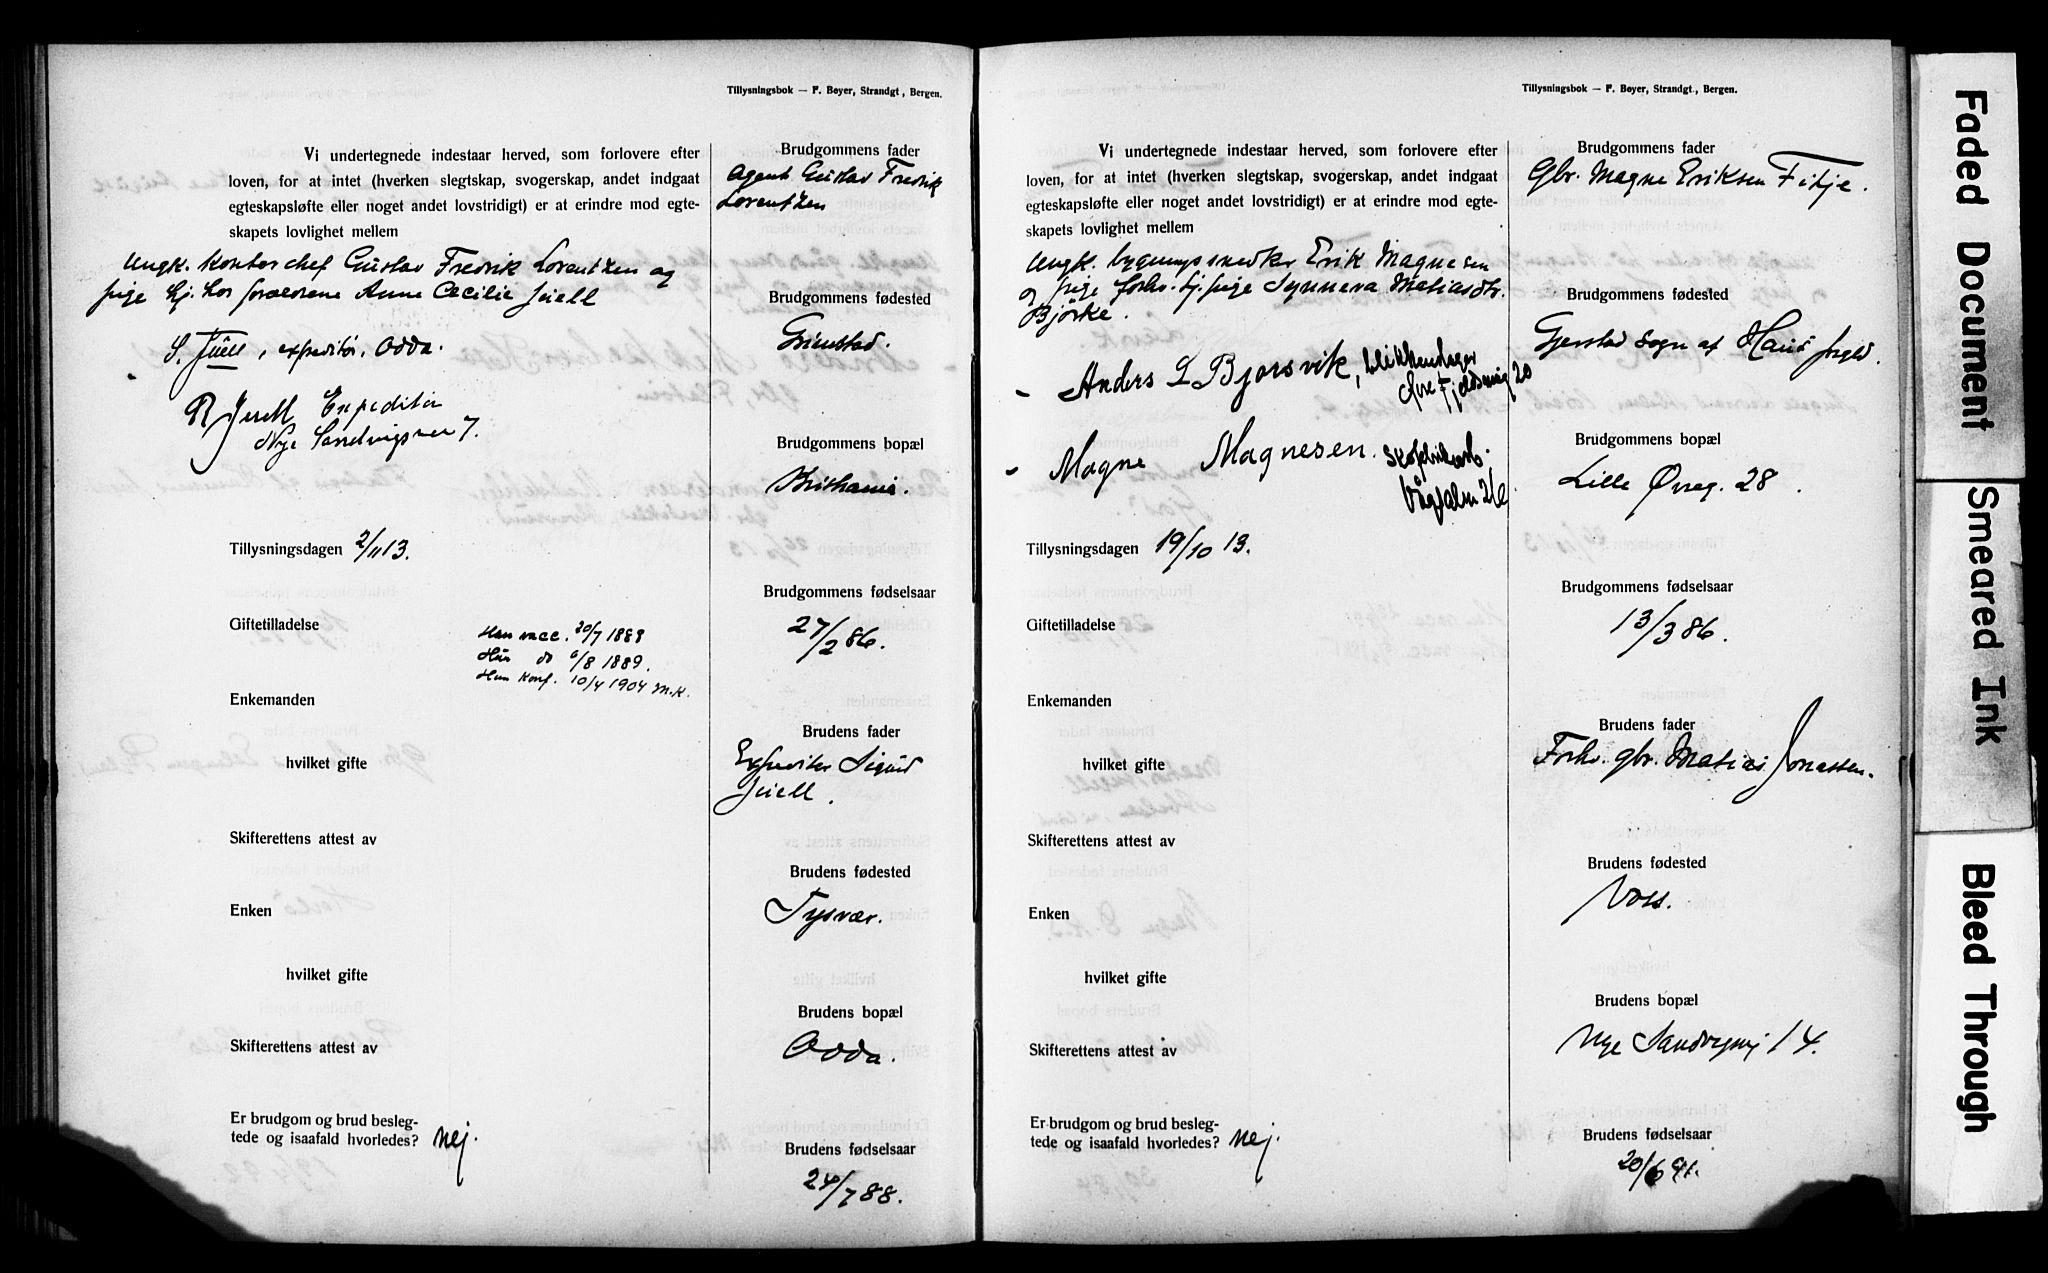 Tillysningsbok — F. Bøyer, Strandgt., Bergen.
Vi undertegnede indestaar herved, som forlovere efter
loven, for at intet (hverken slegtskap, svogerskap, andet indgaat
egteskapsløfte eller noget andet lovstridigt) er at erindre mod egte-
skapets lovlighet mellem
Ungk. Kontorchef Gustav Fredrik Lorentzen og
pige hj. hos forældrene Anne Cecilie Juell
S. Juell, expeditör, Odda.
R Juell Expeditör
Nye Sandvigsvei 7.
Tillysningsdagen 2/11 13.
Giftetilladelse
Han vacc. 20/7 1888
Hun do 6/8 1889.
Hun Konf. 10/4 1904 M.K.
Enkemanden
hvilket gifte
Skifterettens attest av
Enken
hvilket gifte
Skifterettens attest av
Er brudgom og brud besleg-
tede og isaafald hvorledes? Nej.
Brudgommens fader
Agent Gustav Fredrik
Lorentzen
Brudgommens fødested
Grimstad.
Brudgommens bopæl
Kristiania.
Brudgommens fødselsaar
27/2 86.
Brudens fader
Expeditör Sigurd
Juell.
Brudens fødested
Tysvær.
Brudens bopæl
Odda.
Brudens fødselsaar
24/7 88.
Tillysningsbok — F. Bøyer, Strandgt., Bergen.
Vi undertegnede indestaar herved, som forlovere efter
loven, for at intet (hverken slegtskap, svogerskap, andet indgaat
egteskapsløfte eller noget andet lovstridigt) er at erindre mod egte-
skapets lovlighet mellem
Ungk. bygningssnedker Erik Magnesen
og pige forhv. tj. pige Synneva Matiasdtr.
Bjørke.
Anders L Bjorsvik, blikkenslager
Øvre Fjeldsmug 20
Magne Magnesen. Skofabrikarb.
Tillysningsdagen 19/10 13.
Giftetilladelse
Enkemanden
hvilket gifte
Skifterettens attest av
Enken
hvilket gifte
Skifterettens attest av
Er brudgom og brud besleg-
tede og isaafald hvorledes? Nej.
Brudgommens fader
Gbr. Magne Eriksen Fitje.
Brudgommens fødested
Gjerstad sogn af Haus prgld.
Brudgommens bopæl
Lille Øvreg. 28.
Brudgommens fødselsaar
13/3 86.
Brudens fader
Forhv. gbr. Matias Jonassen.
Brudens fødested
Voss.
Brudens bopæl
Nye Sandvigsvej 14.
Brudens fødselsaar
20/6 91.
Faded Document
Smeared Ink
Bleed Through